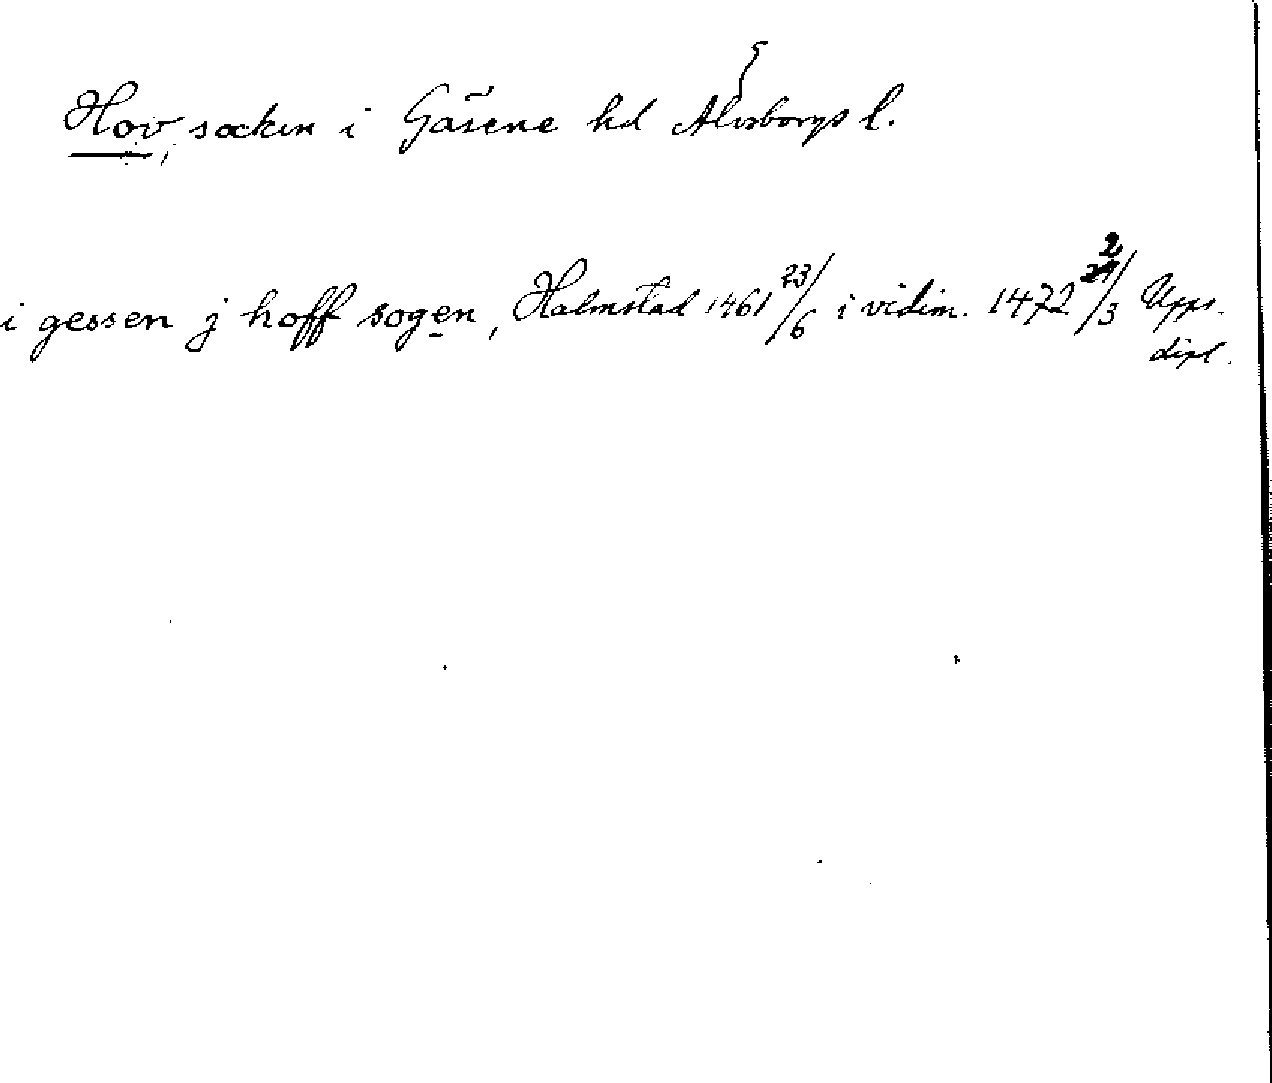 Hov, socken i Gäsene hd Älvsborgs l.
i gessen j hoff sogen, Halmstad 1461 23/6 i vidim. 1472 2/3 Upps.
dipl.